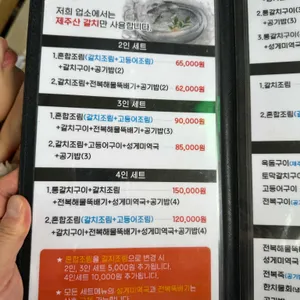 저희 업소에서는
제주산 갈치만 사용합니다.
2인 세트
1.혼합조림(갈치조림+고등어조림) 65,000원
+갈치구이+공기밥(2)
2.갈치조림+전복해물뚝배기+공기밥(2) 62,000원
3인 세트
1.혼합조림(갈치조림+고등어조림) 90,000원
+갈치구이+전복해물뚝배기+공기밥(3)
2.갈치조림+고등어구이+성게미역국 85,000원
+공기밥(3)
4인 세트
1.통갈치구이+갈치조림 150,000원
+전복해물뚝배기+성게미역국+공기밥(4)
2.혼합조림(갈치조림+고등어조림) 120,000원
+갈치구이+고등어구이
+전복해물뚝배기+성게미역국+공기밥(4)
★ 혼합조림을 갈치조림으로 변경 시
2인, 3인 세트 5,000원 추가됩니다.
4인세트 10,000원 추가됩니다.
★ 모든 세트메뉴의 성게미역국과 전복뚝배기는
1.통갈치구이
+공기밥(3)
2.통갈치구이
+고등어구이
+성게미역국
옥돔구이
토막갈치구이
고등어구이
성게미역국
전복해물뚝
전복죽
한치물회